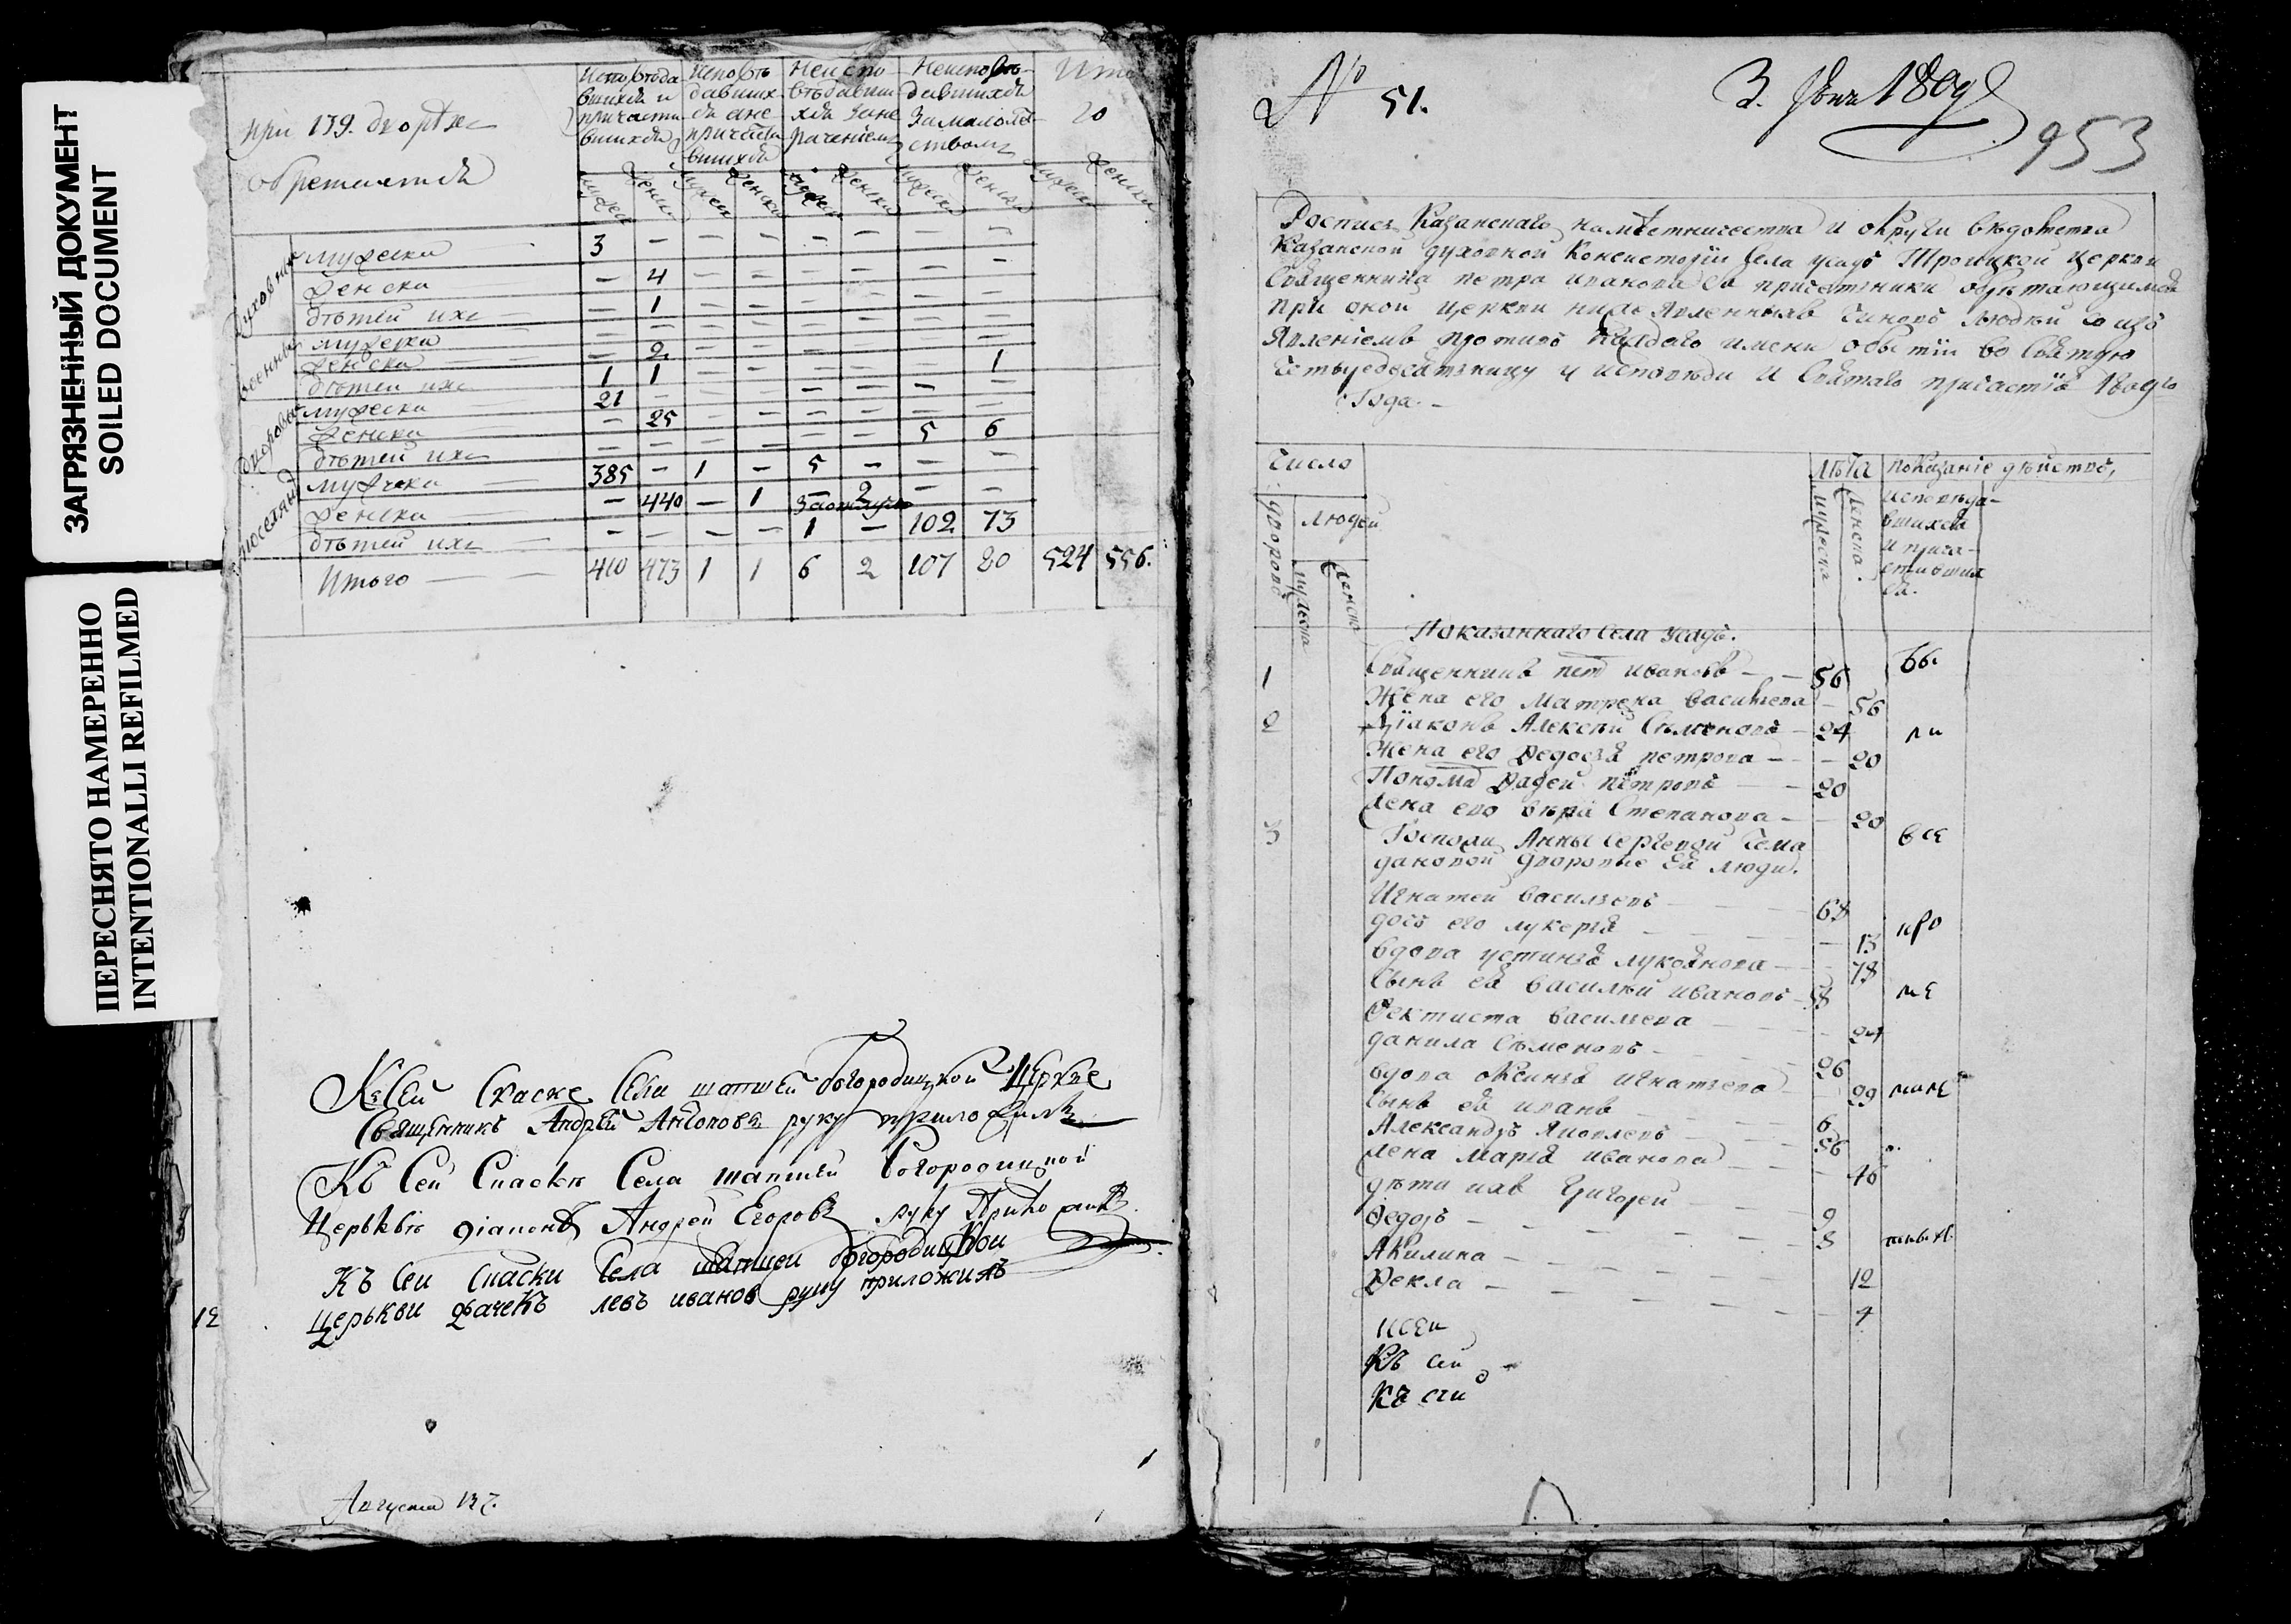 ЗАГРЯЗНЕННЫЙ ДОКУМЕНТ
SOILED DOCUMENT
ПЕРЕСНЯТО НАМЕРЕННО
INTENTIONALLI REFILMED
при 139. дворѣхъ
обретается
Исповѣда-
вшихся и
причасти
вшихся
Исповѣ
давших
ся а не
причасти
вшихся
Неиспо
вѣдавши
хся за не
рачениемъ
Неисповѣ
давшихся
за малолѣ
ствомъ
Ито
го
мужеска 3 — — — — — — —
женска — 4 — — — — — —
дѣтей ихъ — 1 — — — — — —
мужеска — — — — — — — —
женска — 2 — — — — — —
дѣтей ихъ 1 1 — — — — — 1
мужеска 21 — — — — — — —
женска — 25 — — — — — —
дѣтей ихъ — — — — — — 5 6
мужеска 385 — 1 — 5 — — —
женска — 440 — 1 — 2 — —
дѣтей ихъ — — — — 1 — 102 73
Итого 410 473 1 1 6 2 107 80 524 556.
Къ сей скаске села шапшей богородицкой церкве
Священникъ Андрей Антоновъ руку приложилъ
Къ сей скаскѣ села шапшей богородицкой
церьквѣ діаконъ Андрей Егоровъ руку приложилъ
Къ сей скаски села шапшей богородицкой
церькви дьячекъ левъ иванов руку приложилъ
Августа
№ 51.
1809
953
Роспись Казанскаго намѣстничества и округи вѣдомства
Казанской духовной Консистории села усадъ Троицкой церкви
Священника петра иванова съ причетники обрѣтающимся
при оной церкви нижеявленныхъ чиновъ людей со изъ
явлениемъ противъ каждаго имени о бытіи во святую
четыредесятницу у исповѣди и святаго причастія 1809го
года. —
Число
дворовъ
людей
мужеска
женска
лѣта
мужеска
женска
показаніе дѣйствъ,
исповѣда-
вшихся
и прича-
стивших
ся.
Показаннаго села усадъ.
1 Священникъ петръ ивановъ — 56
Жена его Матрена васильева — 56
2 діаконъ Алексѣй Сѣменовъ — 24
Жена его Федосья петрова — 20
Пономарь Фадей петровъ — 20
Жена его вѣра Степанова — 20
3 Госпожи Анны Сергеевой Чема
дановой дворовые ея люди.
Игнатей васильевъ — 68
дочь его лукерья — 13
вдова устинья лукоянова — 78
сынъ ея василей ивановъ — 58
Фектиста васильева — 24
данила Сѣменовъ — 26
вдова оксинья игнатьева — 29
сынъ ея иванъ — 6
Александръ яковлевъ — 56
жена марья иванова — 46
дѣти ихъ григорей — 9
Федоръ — 8
Акилина — 12
Фекла — 4
къ сей
къ сей